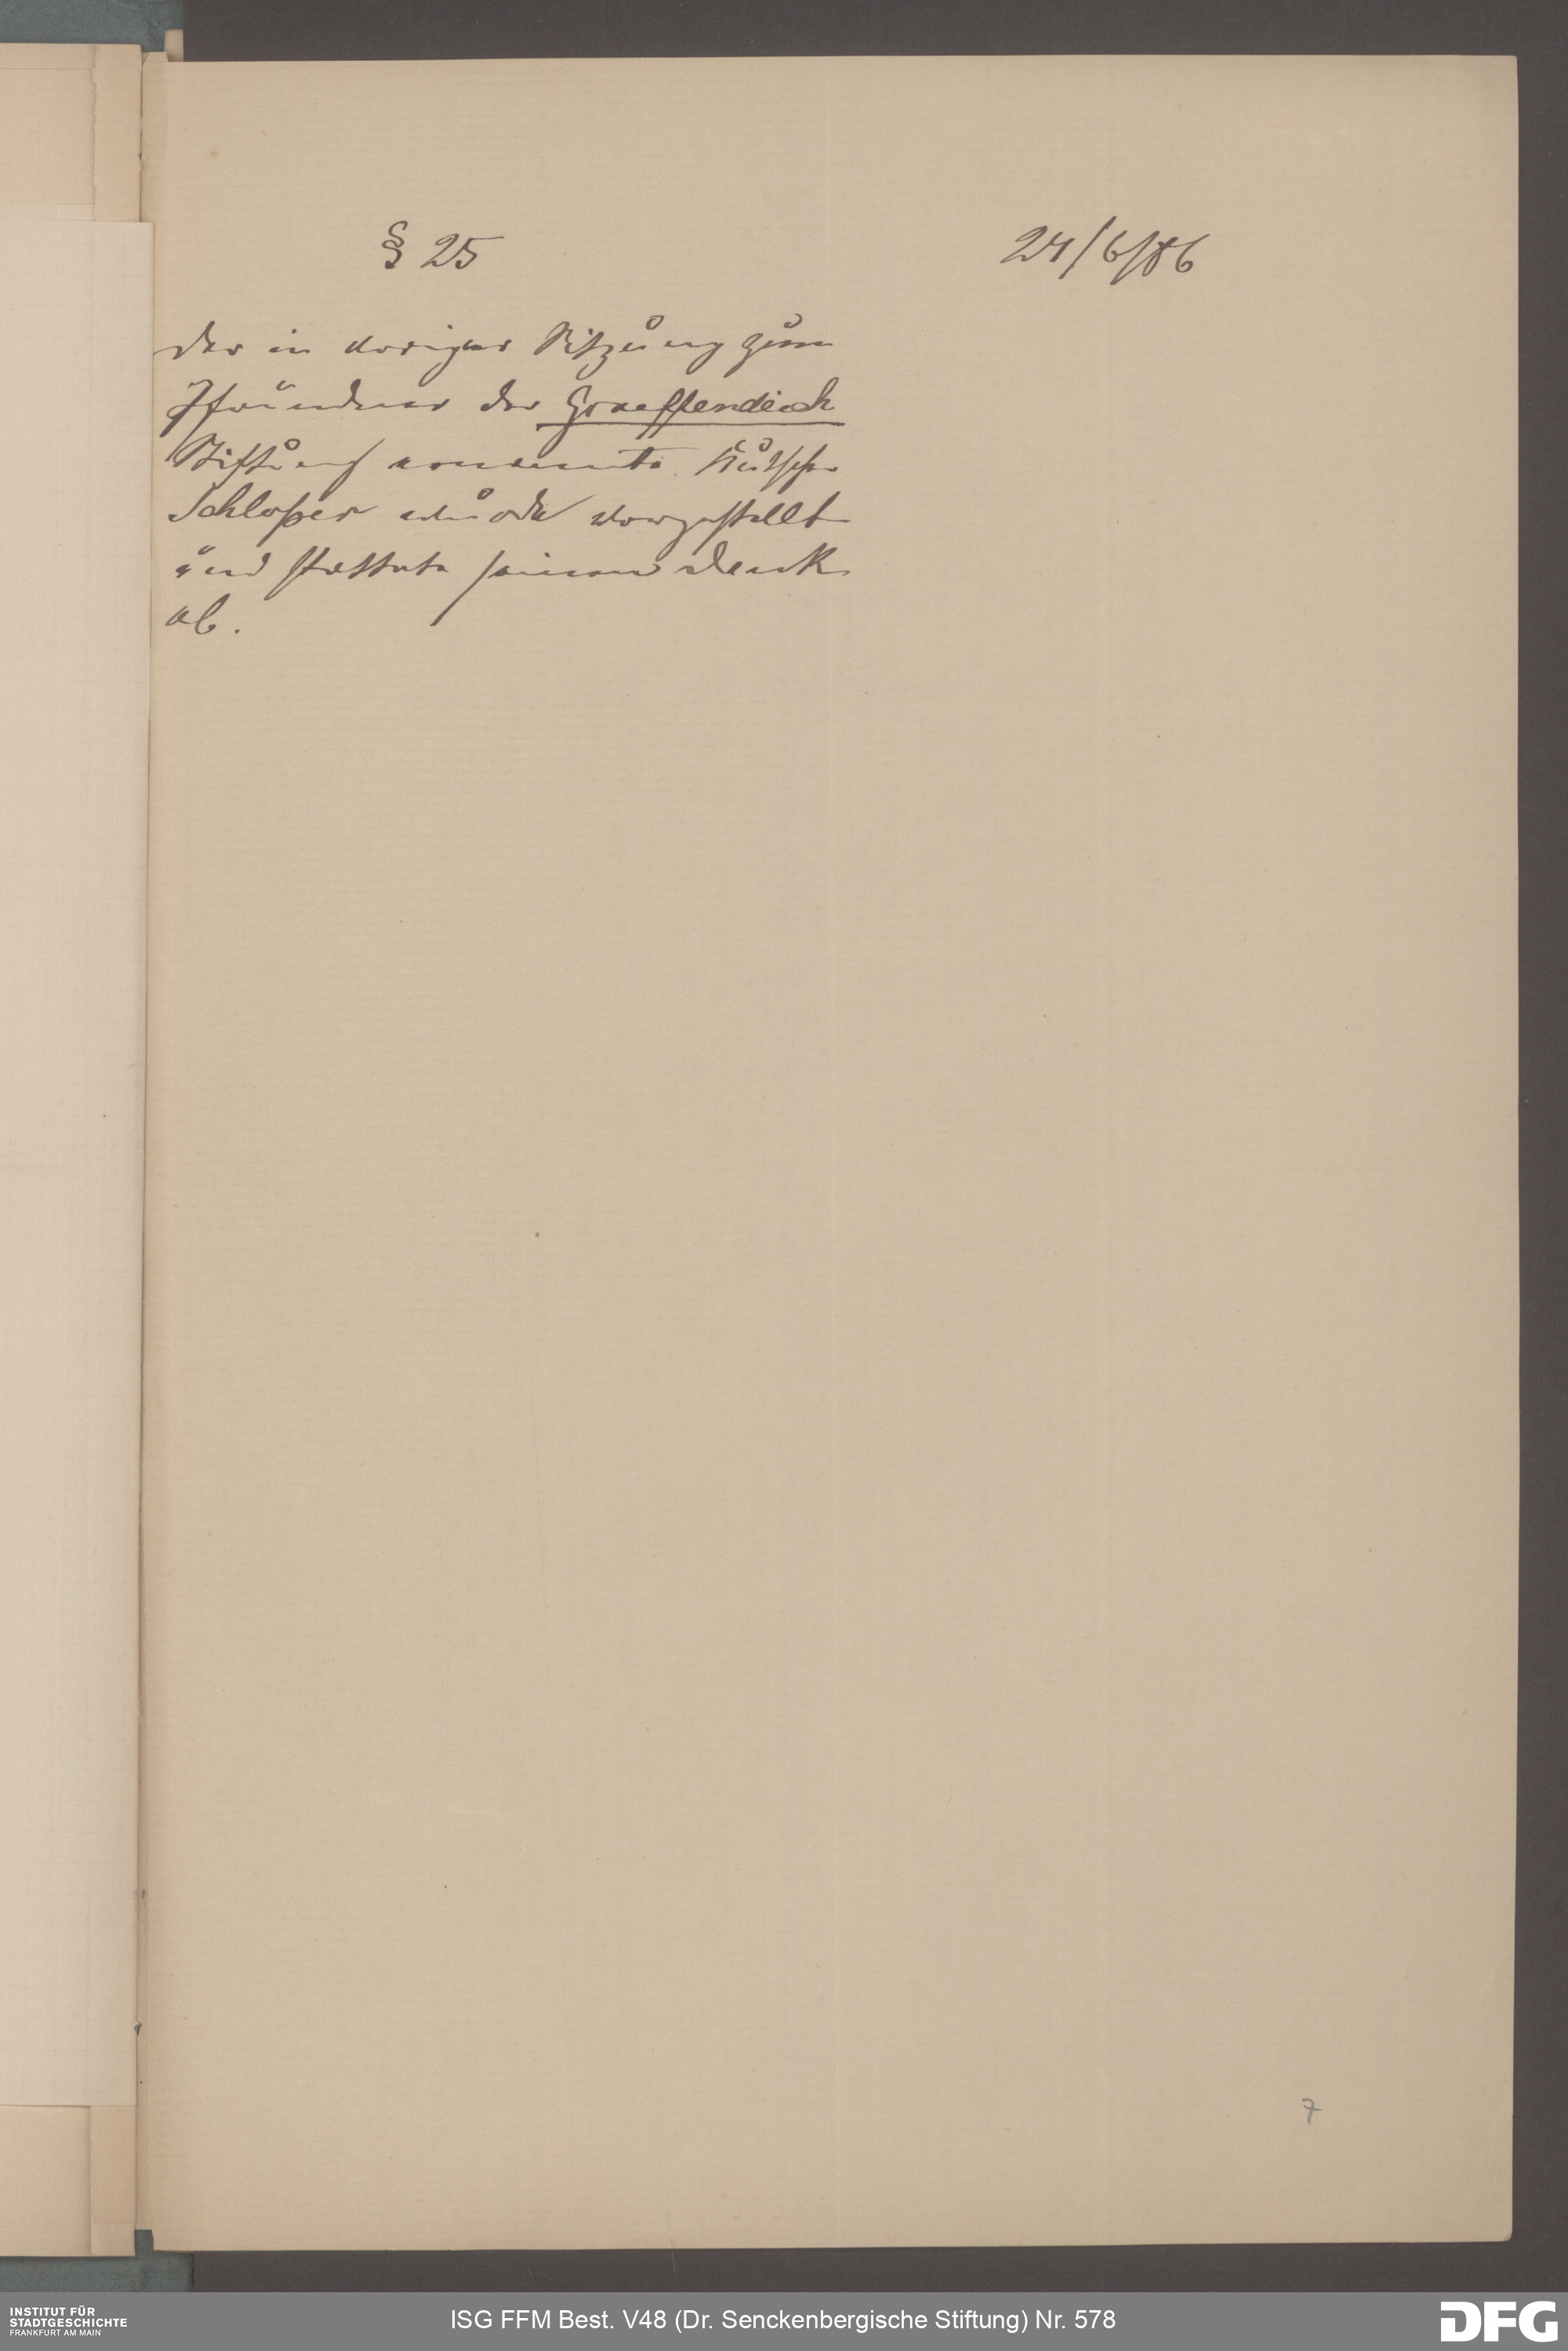 § 25
24/6/86
Der in voriger Sitzung zum
Pfründner der Graeffendeich
Stiftung ernannte Kutscher
Schloßer wurde vorgestellt
und stattete seinen Dank
ab.
7
INSTITUT FÜR
STADTGESCHICHTE
FRANKFURT AM MAIN
ISG FFM Best. V48 (Dr. Senckenbergische Stiftung) Nr. 578
DFG